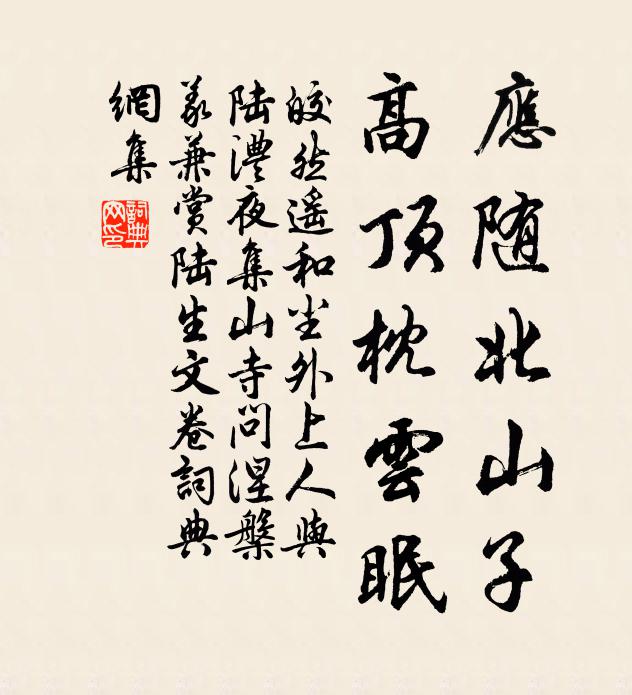 應随北山子
高頂枕雲眠
皎然遥和尘外上人與
陆澧夜集山寺問涅槃
義兼賞陆生文卷詞典
網集
詞典網印